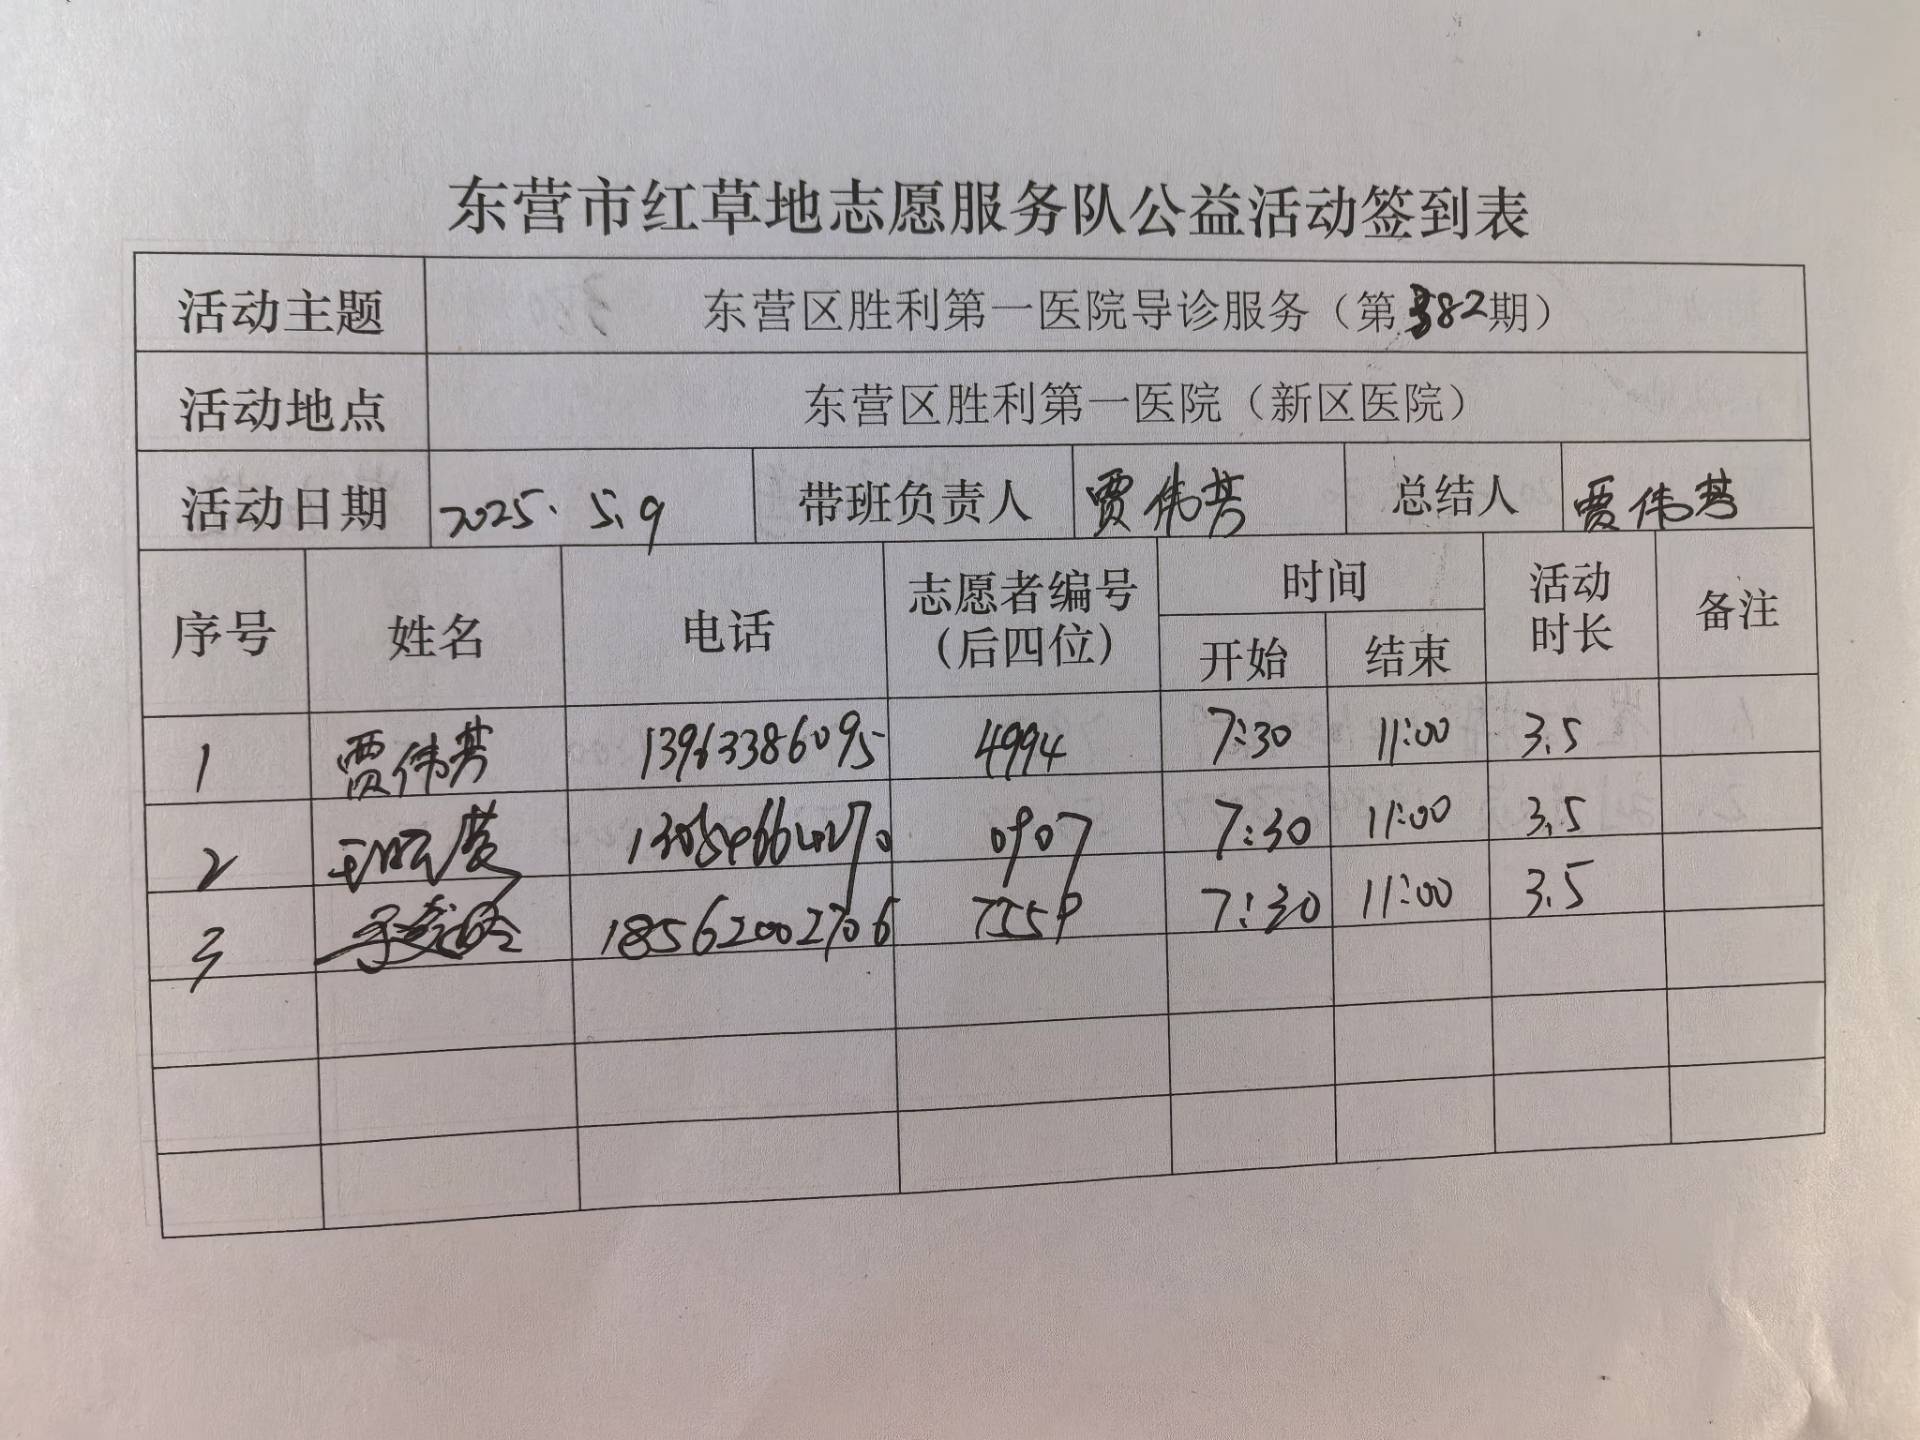 东营市红草地志愿服务队公益活动签到表
活动主题 东营区胜利第一医院导诊服务（第382期）
活动地点 东营区胜利第一医院（新区医院）
活动日期 2025.5.9 带班负责人 贾伟芳 总结人 贾伟芳
序号 姓名 电话 志愿者编号（后四位） 时间 开始 结束 活动时长 备注
1 贾伟芳 13963386095 4994 7:30 11:00 3.5
2 0907 7:30 11:00 3.5
3 18562002706 7559 7:30 11:00 3.5